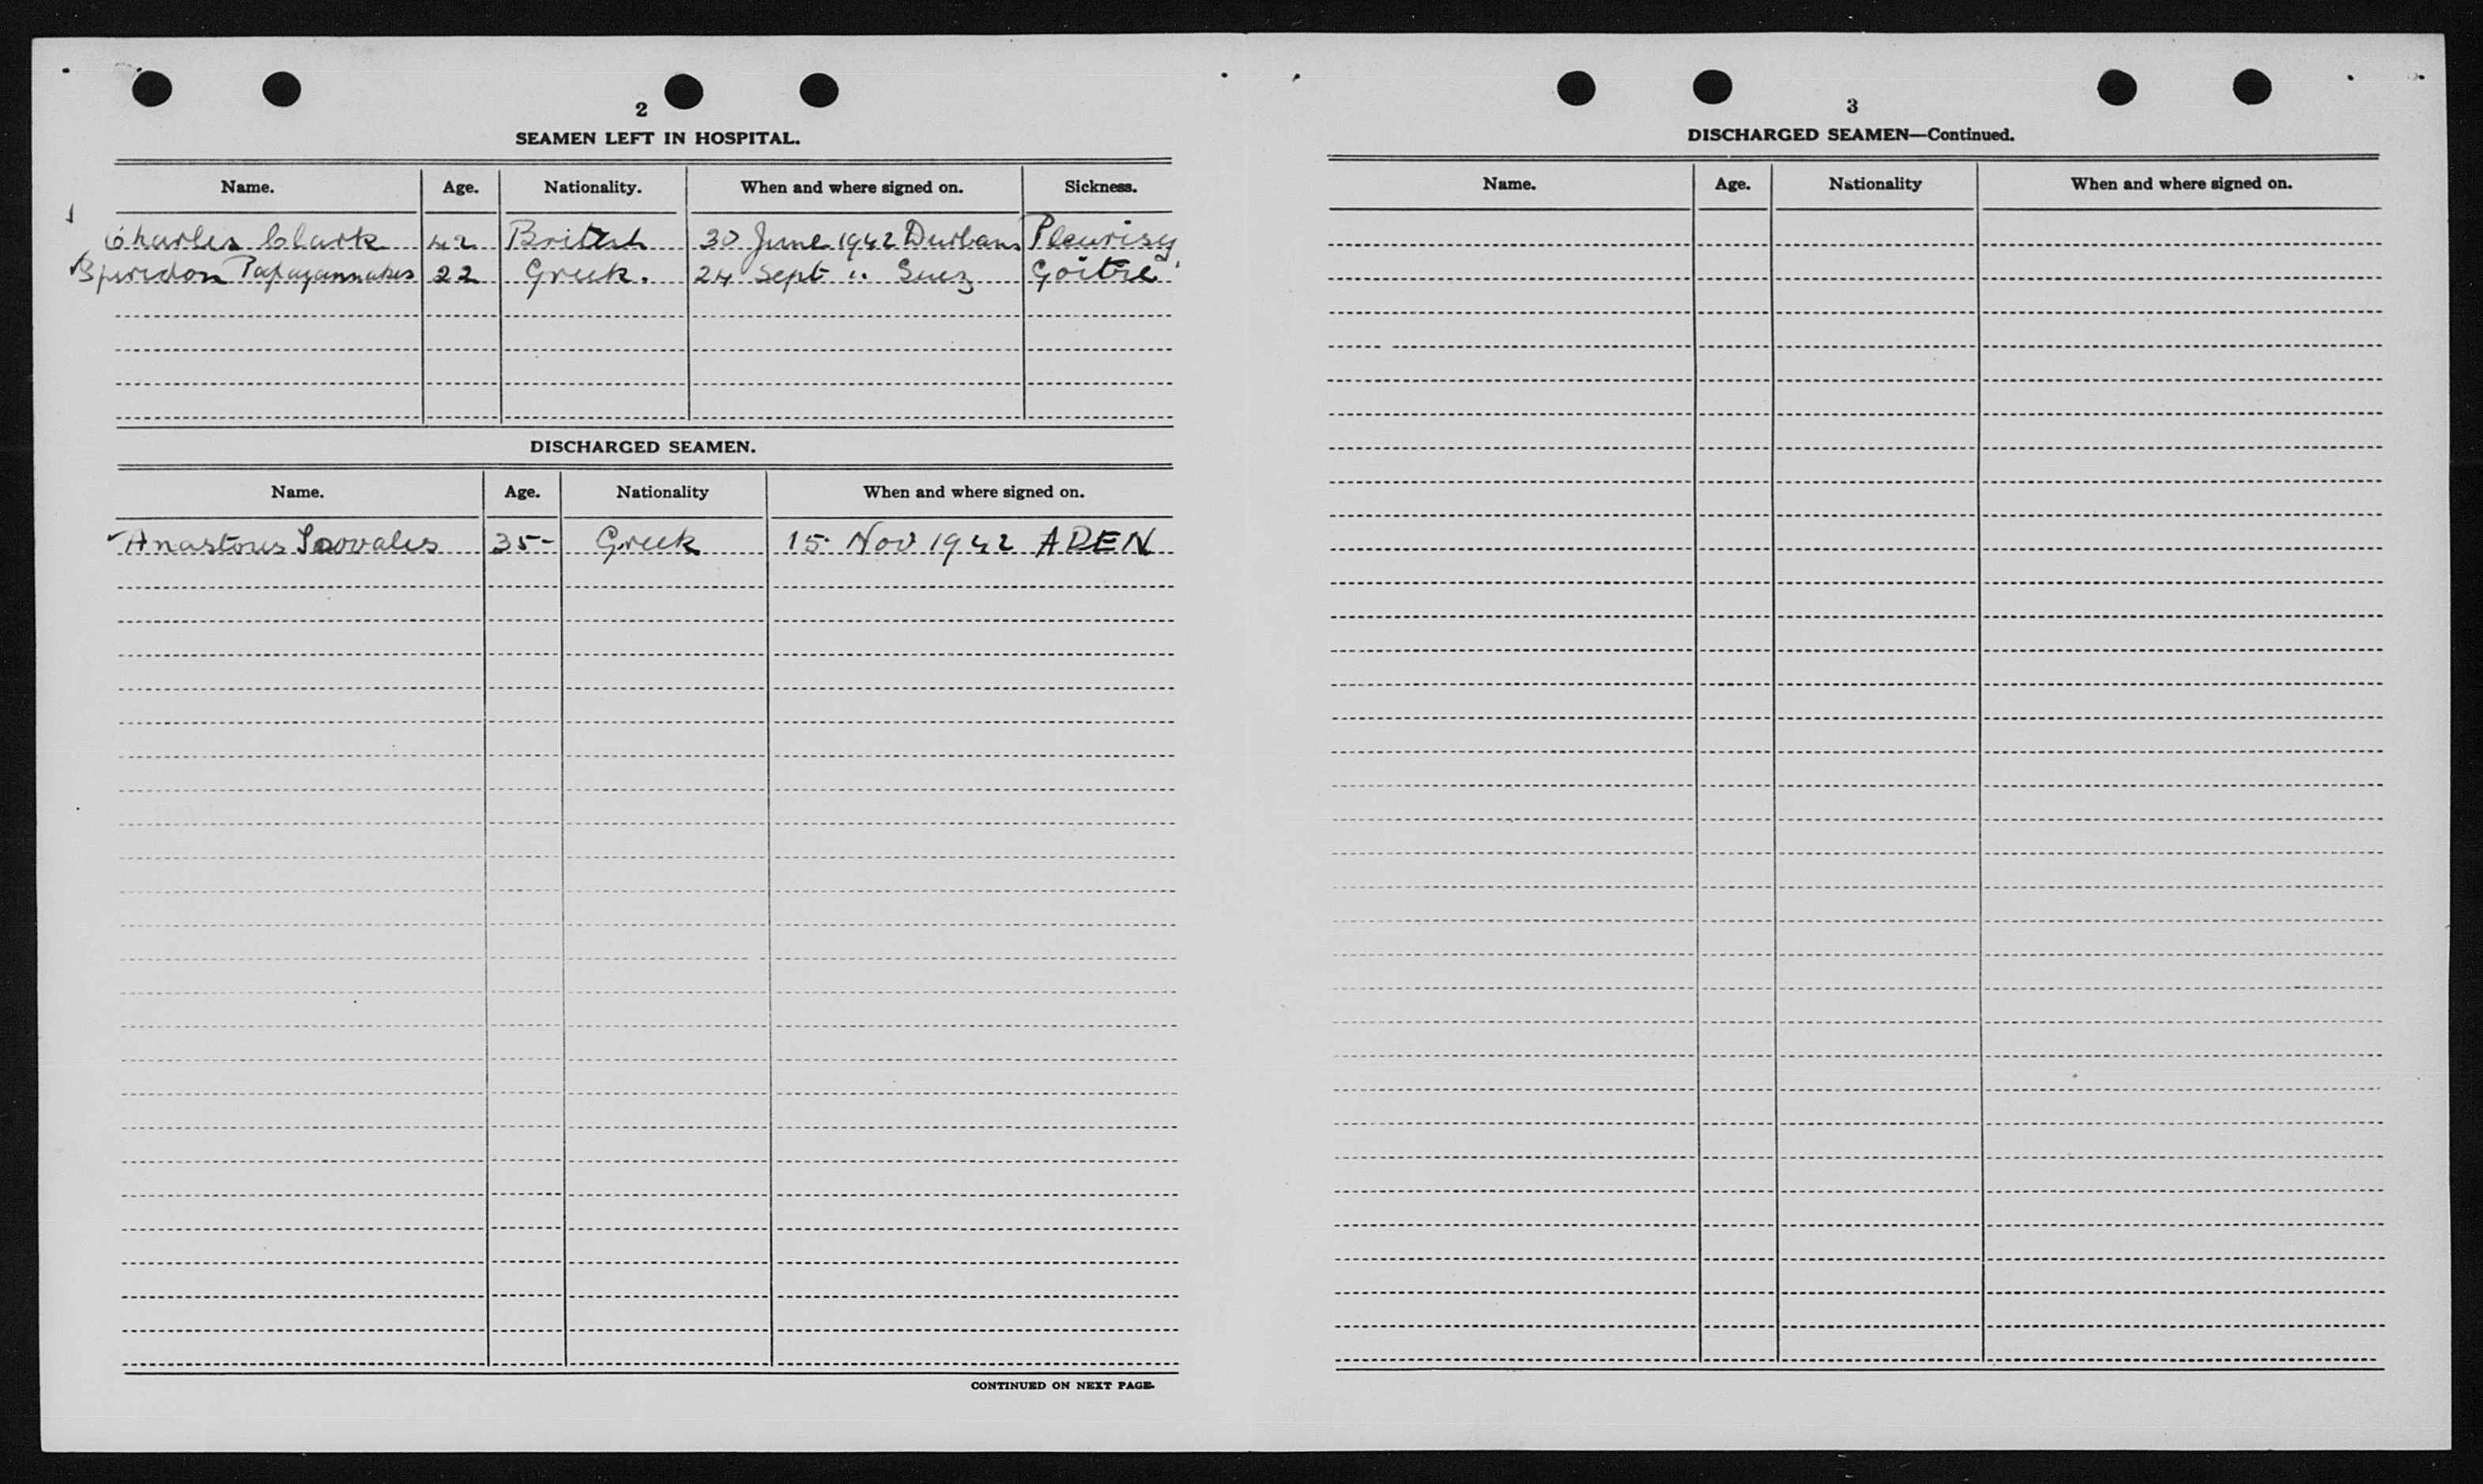 2
SEAMEN LEFT IN HOSPITAL.
Name. Age. Nationality. When and where signed on. Sickness.
Charles Clark 42 British 30 June 1942 Durban Pleurisy
Spiridon 22 Greek. 24 Sept " Suez Goitre
DISCHARGED SEAMEN.
Name. Age. Nationality When and where signed on.
35 Greek 15 Nov 1942 ADEN
CONTINUED ON NEXT PAGE.
3
DISCHARGED SEAMEN—Continued.
Name. Age. Nationality When and where signed on.